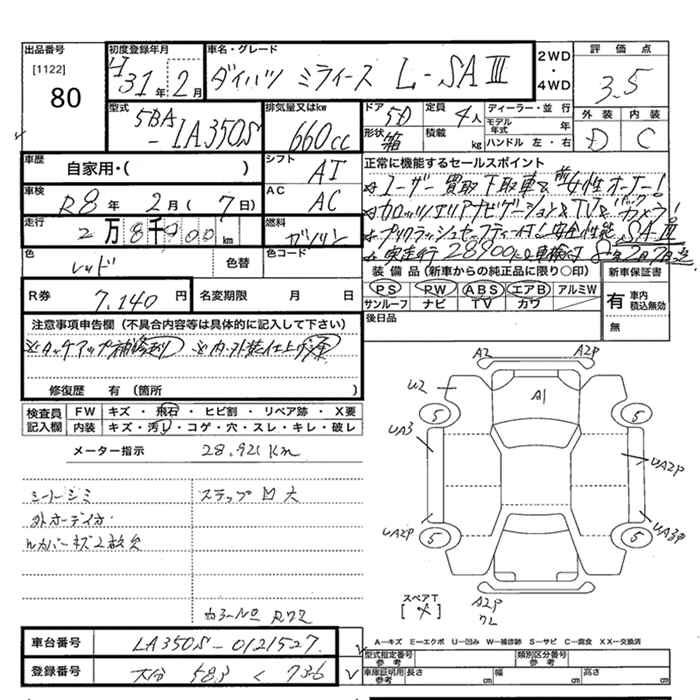 出品番号 初度登録年月 車名・グレード 2WD・4WD 評価点
[1122]
80 H31年2月 ダイハツ ミライース L-SAⅢ 3.5
型式 排気量又はkw ドア 定員 ディーラー・並行 外装 内装
5BA-LA350S 660cc 5D 4人 モデル年式 年 D C
形状 箱 積載 kg ハンドル 左・右
車歴 自家用・( ) シフト AT 正常に機能するセールスポイント
車検 R8年2月(7日) AC AC ☆ユーザー買取下取車& 女性オーナー!
走行 2万8千900km 燃料 ガソリン ☆カロッツェリアナビゲーション&TV&バックカメラ!
色 レッド 色替 色コード ☆ 安全性能 SAⅢ
☆実走行28900 車検付 8年2月7日迄
R券 7,140円 名変期限 月 日 装備品(新車からの純正品に限り〇印) 新車保証書
PS PW ABS エアB アルミW 有 車内 積込無効
サンルーフ ナビ TV カワ 無
後日品
注意事項申告欄(不具合内容等は具体的に記入して下さい)
※タッチアップ補修有り ※内・外装仕上げ済
修復歴 有(箇所
検査員記入欄 FW キズ・飛石・ヒビ割・リペア跡・X要
内装 キズ・汚レ・コゲ・穴・スレ・キレ・破レ
メーター指示 28,921km
シートシミ ステップ凹大
外オーディオ
カラーNo R72
A2 A2P
U2 A1
5 5
UA3 UA2P
UA2P UA3P
5 5
スペアT
A2P
A—キズ E—エクボ U—凹み W—補修跡 S—サビ C—腐食 XX—交換済
車台番号 LA350S-0121527 型式指定番号 参考 類別区分番号 参考
登録番号 大分 583 く 736 車庫証明用 参考 長さ cm 幅 cm 高さ cm